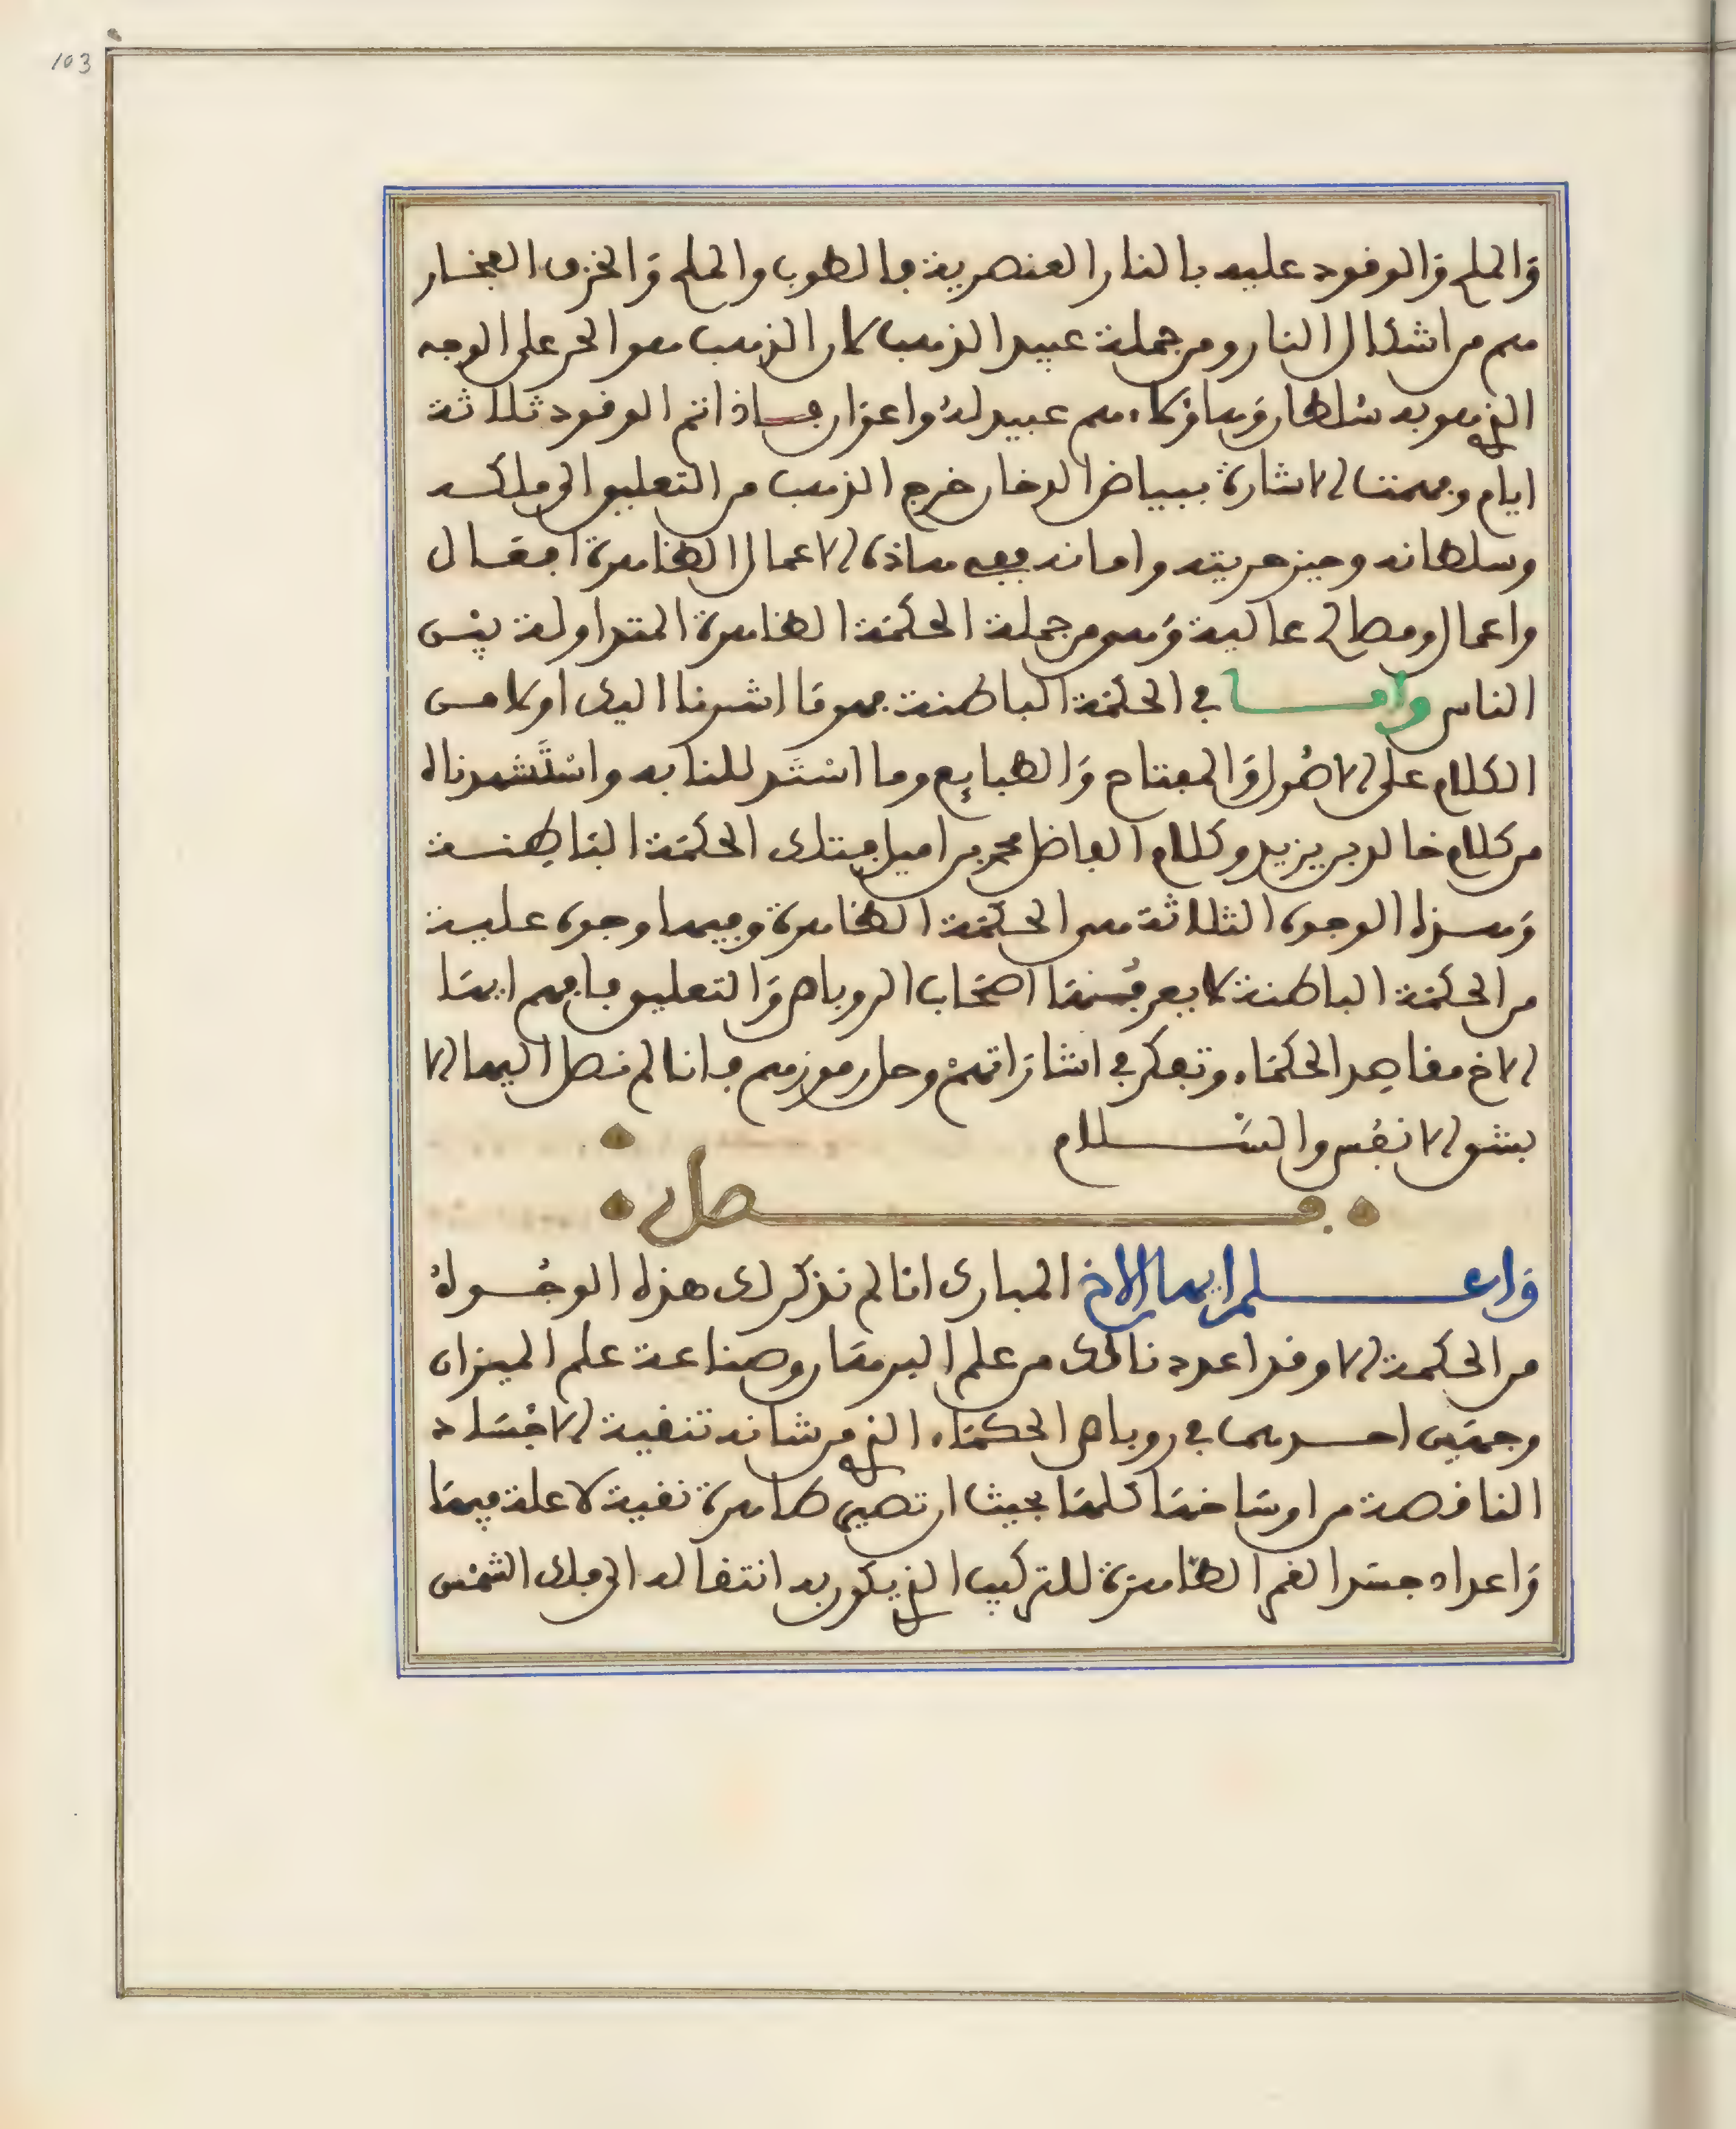 103
والملح والوقود عليه بالنار العنصرية فالطوب والملح والخزف الفخار
هم من اشكال النار ومن جملة عبيد الذهب لان الذهب هو الحر على الوجه
الذي هو به سلطان وهاؤلاء هم عبيد له واعوان فاذا تم الوقود ثلاثة
ايام وفهمت الاشارة ببياض الدخان خرج الذهب من التعليق الى ملكه
وسلطانه وحيز حريته وامانه ففي هاذه الاعمال الظاهرة افعال
واعمال ومطالب عالية وهو من جملة الحكمة الظاهرة المتداولة بين
الناس واما في الحكمة الباطنة فهو ما اشرنا اليك اولا من
الكلام على الاصول والمفتاح والطبايع وما استدللنا به واستشهدناه
من كلام خالد بن يزيد وكلام الفاضل محمد بن اميل فتلك الحكمة الباطنة
وهذه الوجوه الثلاثة هي الحكمة الظاهرة وفيها وجوه علية
من الحكمة الباطنة لا يعرفنها اصحاب الروباص والتعليق فافهم ايها
الاخ مقاصد الحكماء وتفكر في اشاراتهم وحل رموزهم فانا لم نصل اليها الا
بشق الانفس والسلام
فصل
واعلم ايها الاخ المبارك انا لم نذكر لك هذه الوجوه
من الحكمة الا وقد اعددنا لك من علم البرهان وصناعة علم الميزان
وجهين احدهما في روباص الحكماء الذي من شانه تنقية الاجساد
الناقصة من اوساخها كلها بحيث ان تصير طاهرة نقية لا علة فيها
واعداد جسد القمر الطاهرة للتركيب الذي يكون به انتقاله الى فلك الشمس